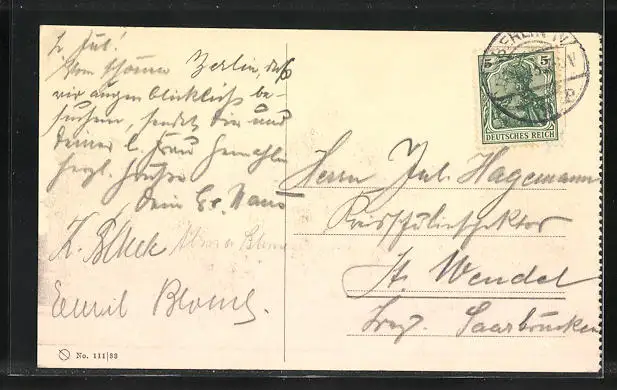 L. Jul!
Vom schönen Berlin, das
wir augenblicklich be-
suchen, sendet Dir und
Deiner l. Frau Gemahlin
herzl. Grüße
Dein Hans
K. Bleek
Emil Blome.
No. 111/33
BERLIN W.
5 5
DEUTSCHES REICH
Herrn Jul. Hagemann
Kreisschulinspektor
St. Wendel
Bez. Saarbrücken